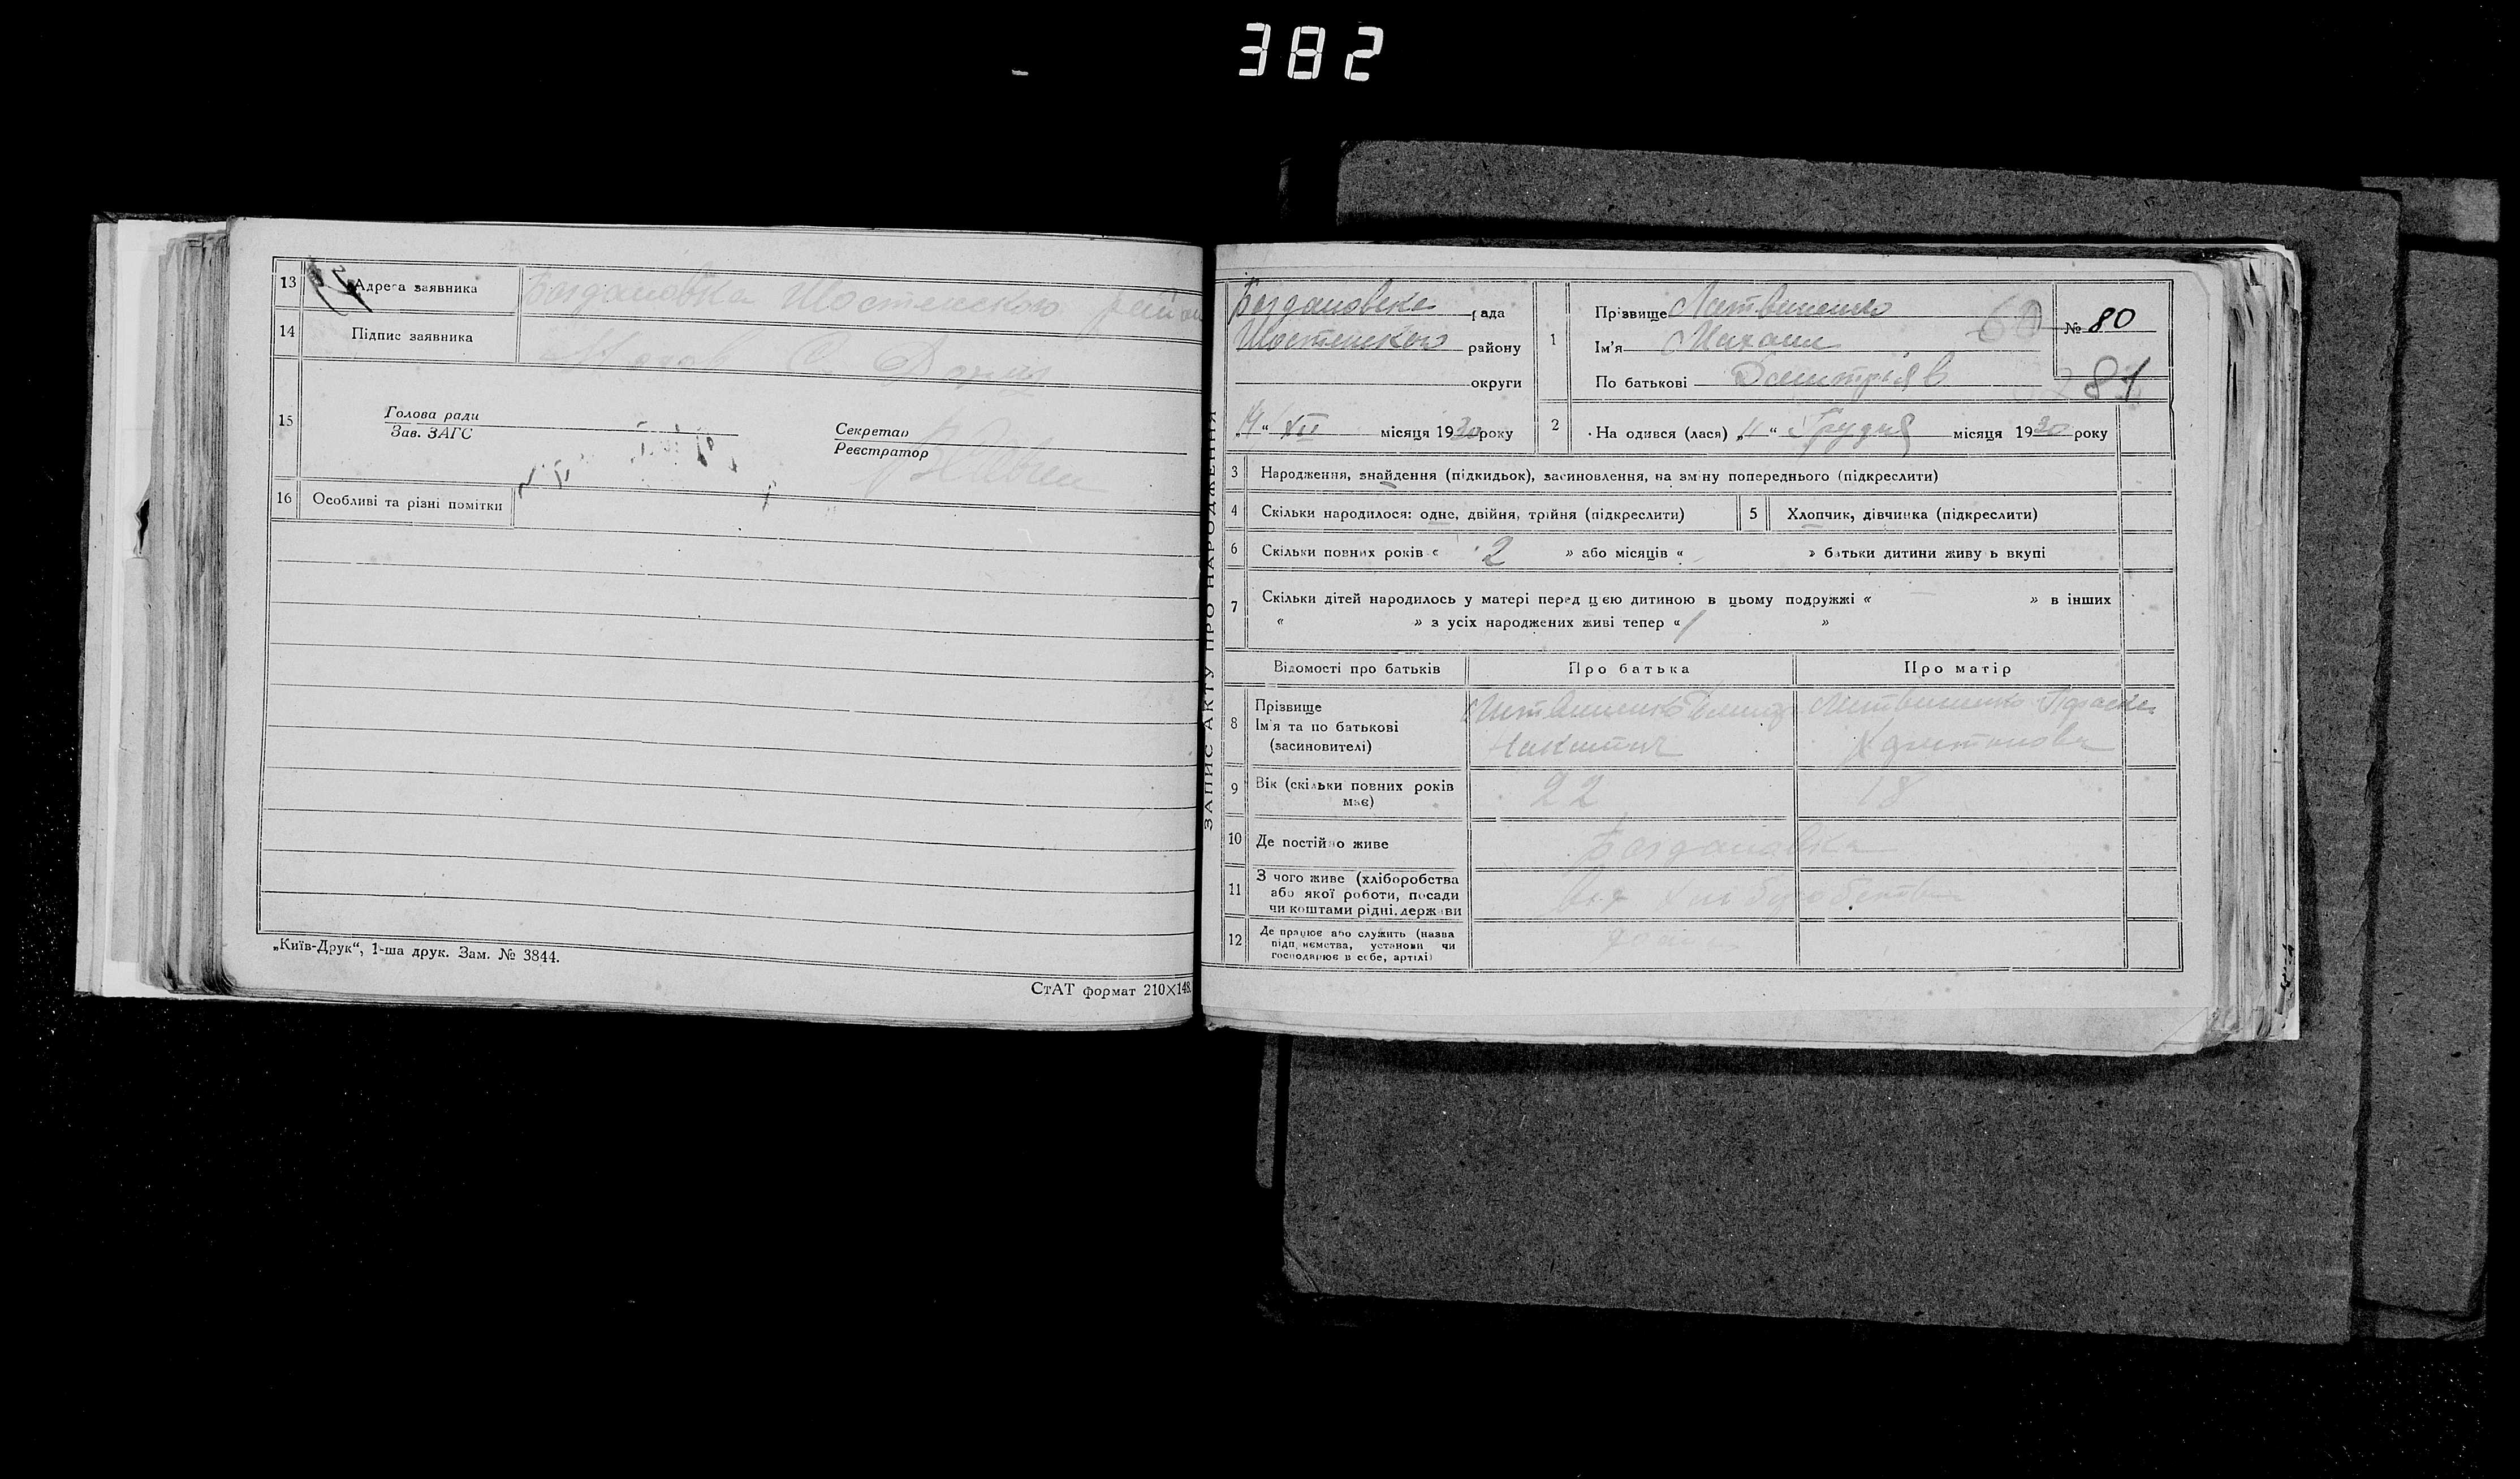 382
13 Адреса заявника Богдановка Шостенского район
14 Підпис заявника
15 Голова ради
Зав. ЗАГС
Секретар
Реєстратор
16 Особливі та різні помітки
„Київ-Друк“, 1-ша друк. Зам. № 3844.
СтАТ формат 210×148.
ЗАПИС АКТУ ПРО НАРОДЖЕННЯ
Богдановська рада
Шостенского району
округи
„14“ XII місяця 1930 року
1 Прізвище Литвиненко
Ім'я Михаил
По батькові Дмитріяв
60
№ 80
81
2 Народився (лася) „11“ Грудня місяця 1930 року
3 Народження, знайдення (підкидьок), засиновлення, на зміну попереднього (підкреслити)
4 Скільки народилося: одне, двійня, трійня (підкреслити)
5 Хлопчик, дівчинка (підкреслити)
6 Скільки повних років « 2 » або місяців « » батьки дитини живуть вкупі
7 Скільки дітей народилось у матері перед цією дитиною в цьому подружжі « — » в інших
« » з усіх народжених живі тепер « 1 »
Відомості про батьків Про батька Про матір
8 Прізвище
Ім'я та по батькові
(засиновителі)
Литвиненко Дмитр
Никитич
Литвиненко Параска
9 Вік (скільки повних років має) 22 18
10 Де постійно живе Богдановка
11 З чого живе (хліборобства
або якої роботи, посади
чи коштами рідні, держави
12 Де працює або служить (назва
підприємства, установи чи
господарює в себе, артілі)